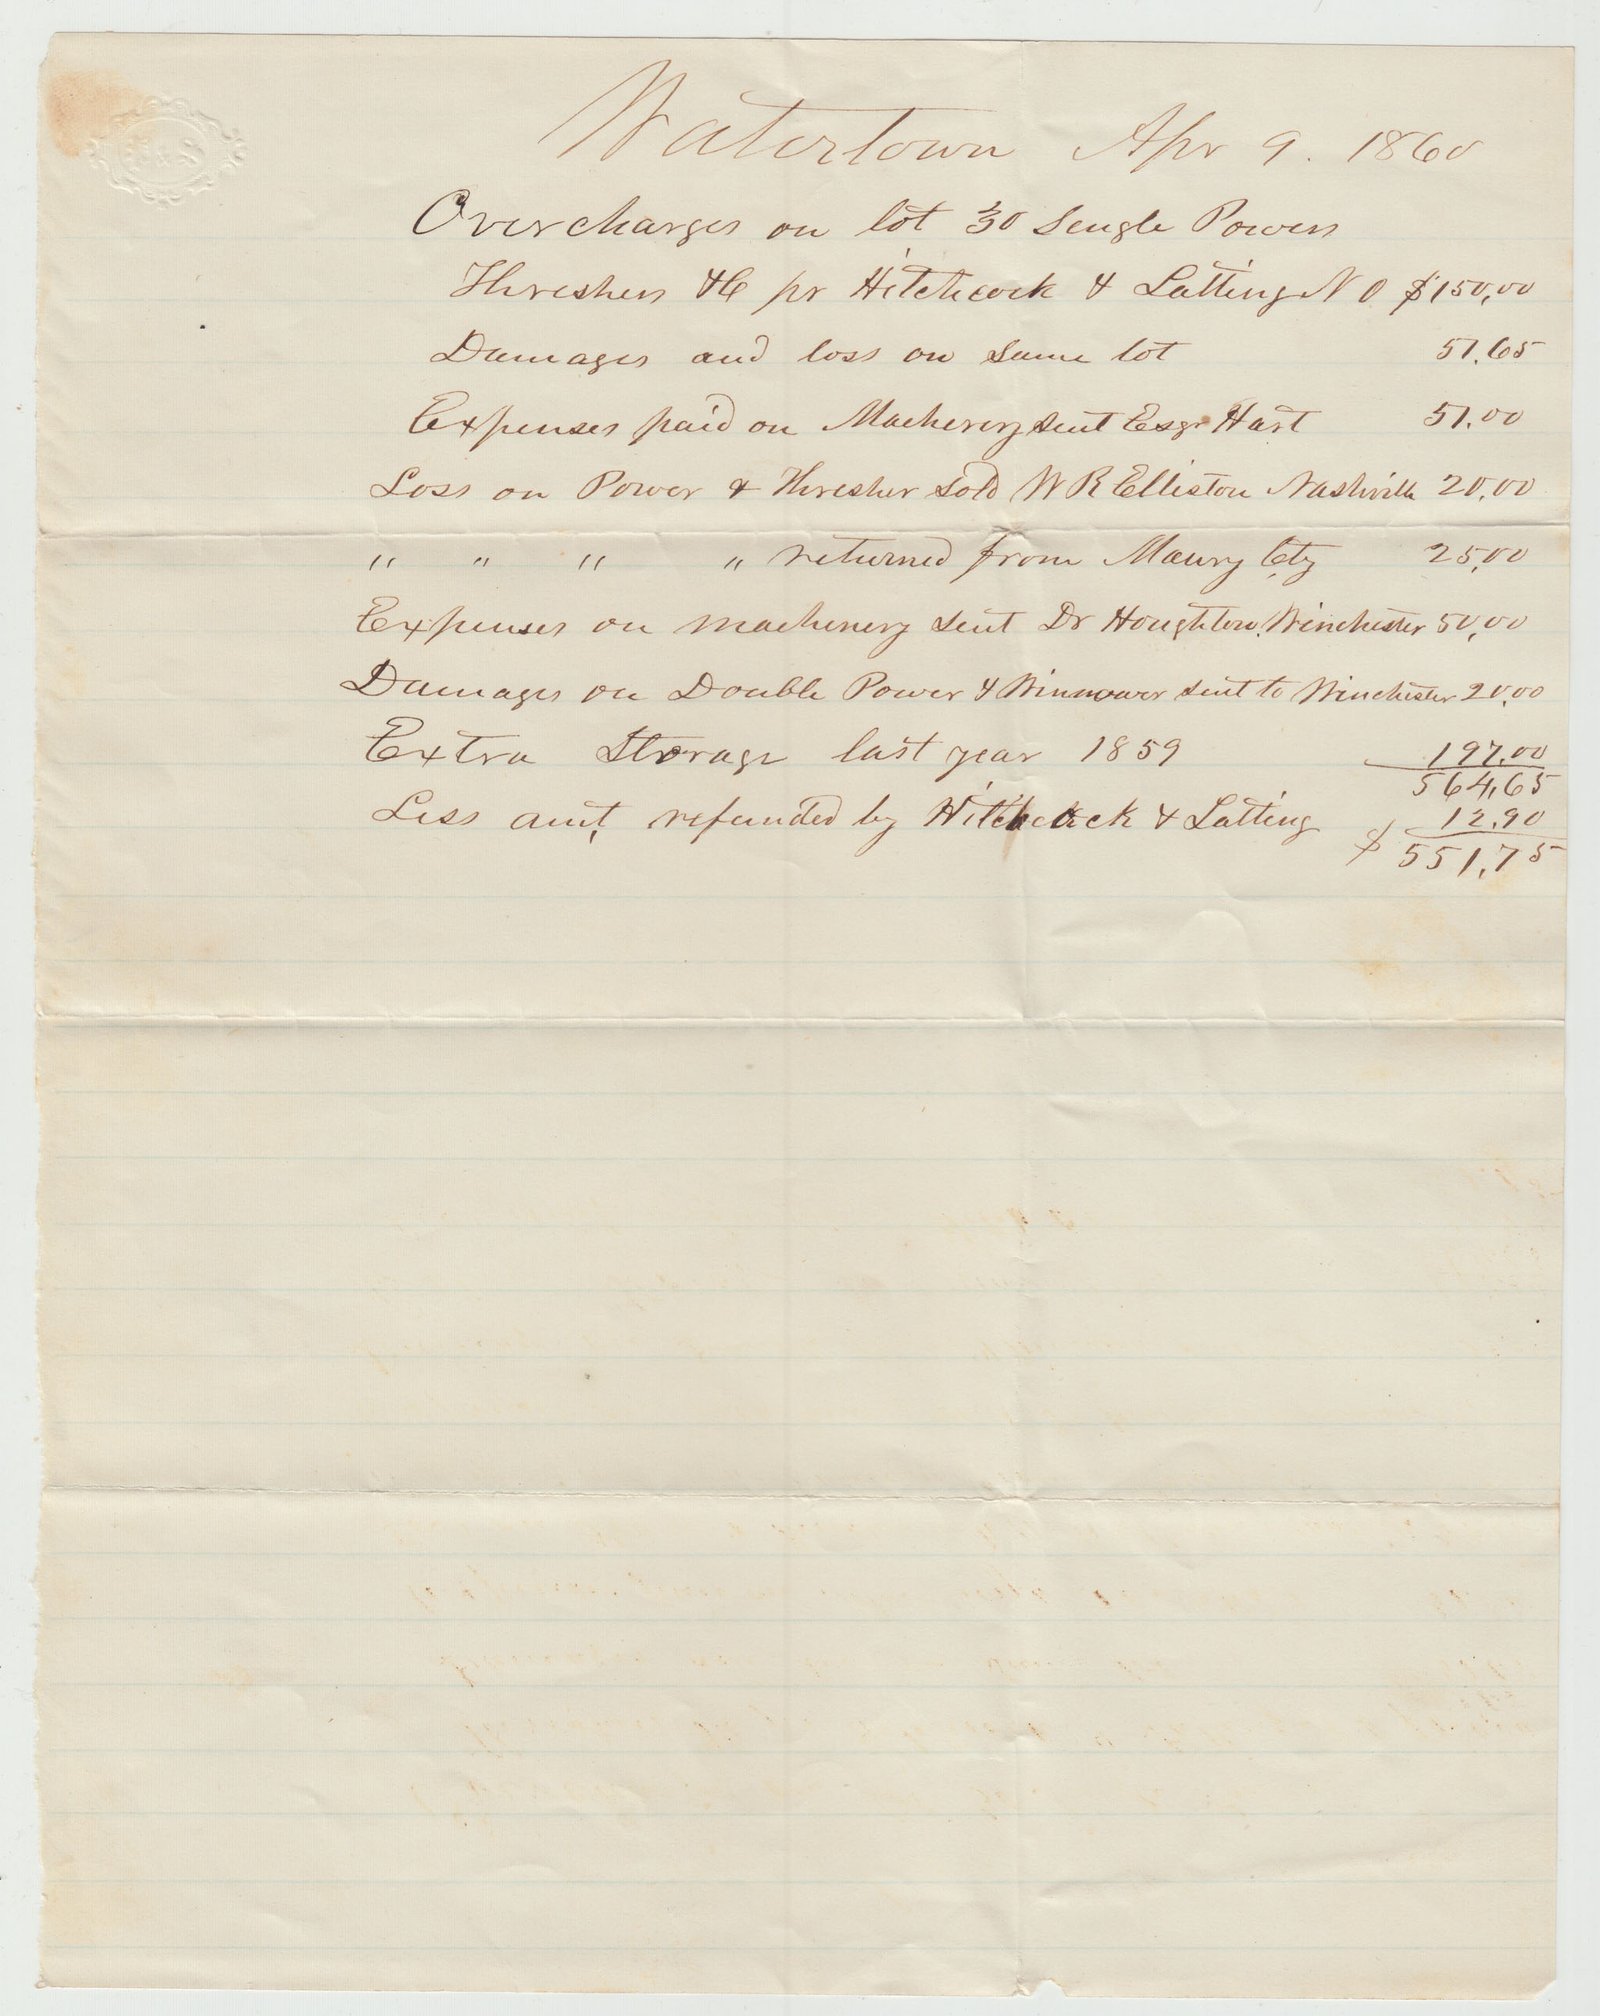 Watertown Apr 9. 1860
Overcharges on lot 30 Single Powers
Threshers &C pr Hitchcock & Latting N O $150,00
Damages and loss on Same lot 51.65
Expenses paid on Machinery sent Esqr Hart 51.00
Loss on Power & Thresher Sold W R Elliston Nashville 20,00
" " " " returned from Maury Cty 25,00
Expenses on machinery sent Dr Houghton, Winchester 50,00
Damages on Double Power & Winnower sent to Winchester 20,00
Extra Storage last year 1859 197.00
564,65
Less amt, refunded by Hitchcock & Latting 12.90
$ 551,75